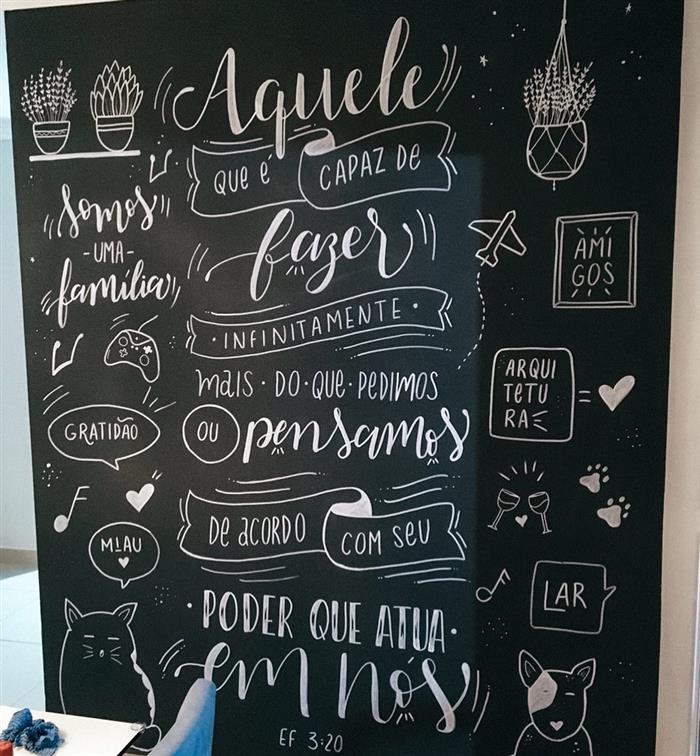 Aquele
QUE É CAPAZ DE
fazer
INFINITAMENTE
mais · DO · QUE · PEDIMOS
OU pensamos
DE aCORDO COM SEU
PODER QUE ATUA
em nós
EF 3:20
somos
- UMA -
família
GRATIDÃO
MIAU
AMI
GOS
ARQUI
TETU
RA =
LAR